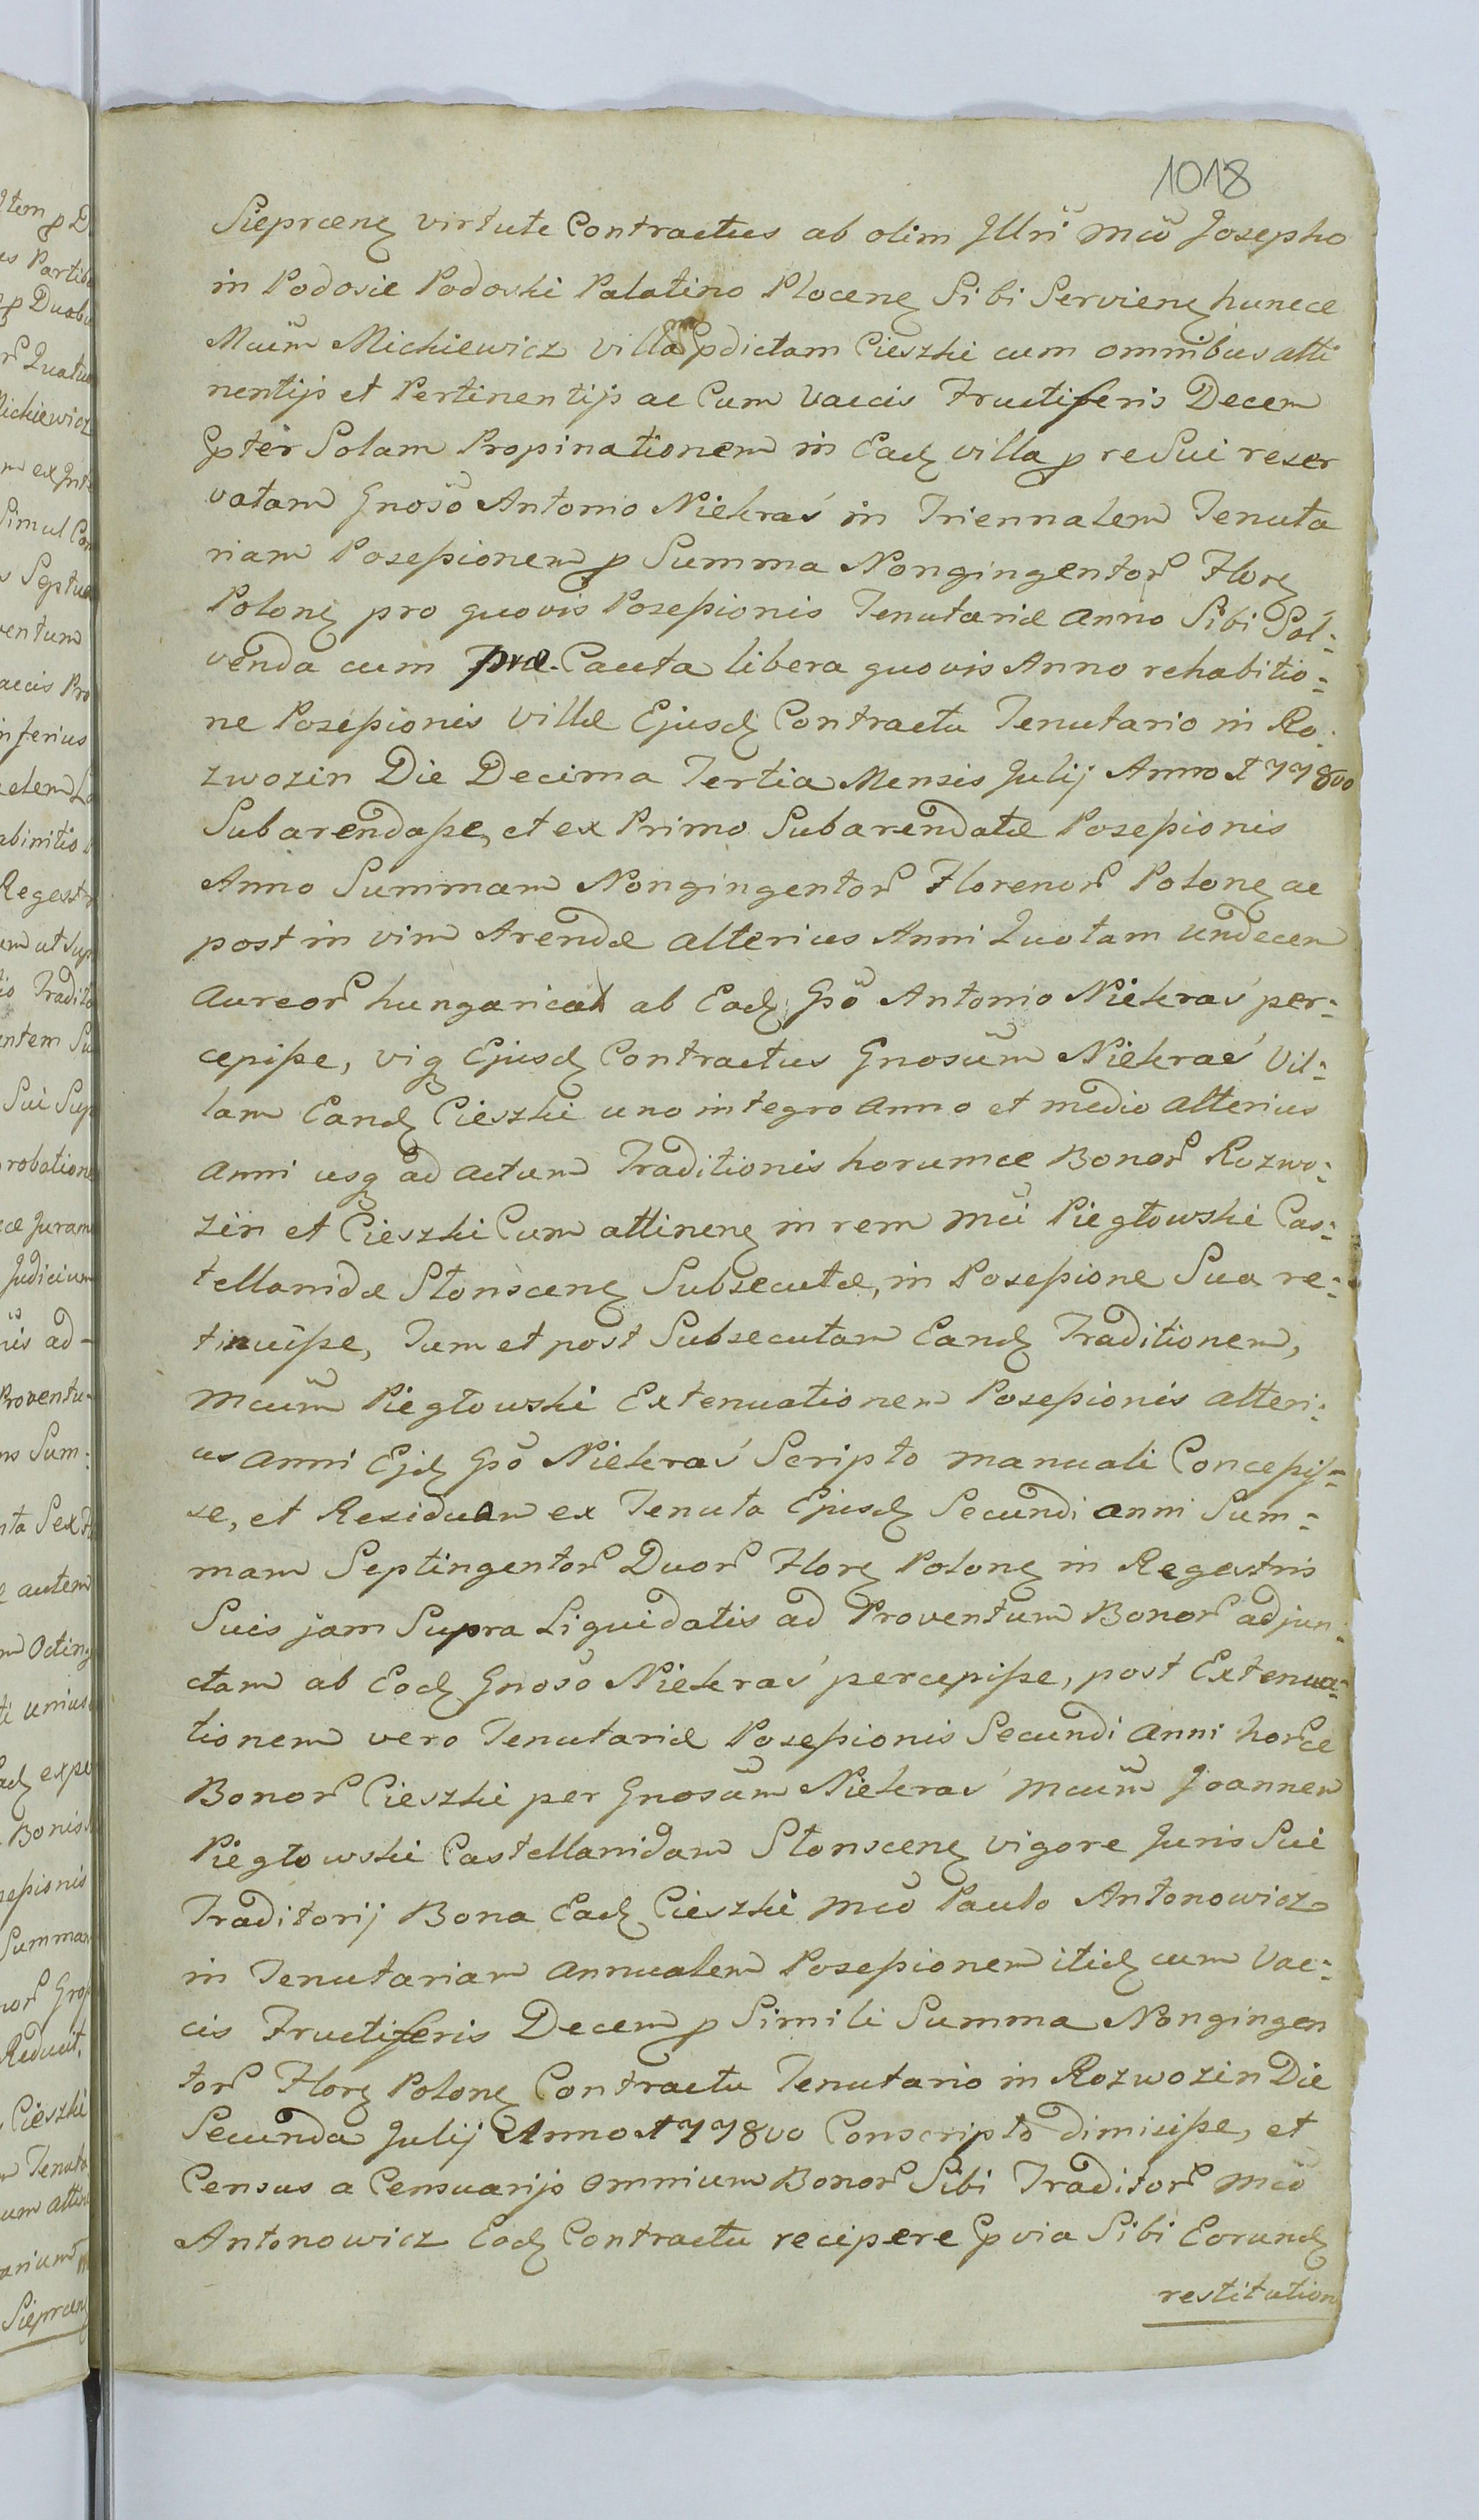 1018
Sieprcen͠ virtute Contractus ab olim Jllrĩ Mcõ Josepho
in Podosie Podoski Palatino Plocen͠ Sibi Servien͠ huncce
Mcũm Michiewicz villam p̃dictam Cieszki cum omnibus atti
nentijs et Pertinentijs ac Cum Vaccis Fructiferis Decem
p̃ter Solam Propinationem in Ead͠ villa p̱ re Sui reser
vatam Gnosõ Antonio Niekraś in Triennalem Tenuta
riam Possessionem p̱ Summa Nongingentor͠ Flor͠
Polon͠ pro quovis Possessionis Tenutariæ Anno Sibi Sol-
venda cum præ-Cauta libera quovis Anno rehabitio-
ne Possessionis Villæ Ejusd͠ Contractu Tenutario in Ro-
zwozin Die Decima Tertia Mensis Julij Anno 1778vo
Subarendasse, et ex Primo Subarendatæ Possessionis
Anno Summam Nongingentor͠ Florenor͠ Polon͠ ac
post in vim Arendæ alterius Anni Quotam Undecem
Aureor͠ hungarical ab Eod͠ Gsõ Antonio Niekraś per-
cepisse, vig͠ Ejusd͠ Contractus Gnosũm Niekraś Vil-
lam Eand͠ Cieszki uno integro Anno et medio Alterius
Anni usq͠ ad actum Traditionis horumce Bonor͠ Rozwo-
zin et Cieszki Cum attinen͠ in rem Mci Piegłowski Cas-
tellanidæ Słonscen͠ Subsecutæ, in Possessione Sua re-
tinuisse, Tum et post Subsecutam Eand͠ Traditionem,
Mcũm Piegłowski Extenuationem Possessionis alteri-
us Anni Ejd͠ Gsõ Niekraś Scripto manuali Concepis-
se, et Residuam ex Tenuta Ejusd͠ Secundi anni Sum-
mam Septingentor͠ Duor͠ Flor͠ Polon͠ in Regestris
Suis jam Supra Liquidatis ad Proventum Bonor͠ adjun-
ctam ab Eod͠ Gnosõ Niekraś percepisse, post Extenua-
tionem vero Tenutariæ Possessionis Secundi Anni hor͠ce
Bonor͠ Cieszki per Gnosũm Niekraś Mcũm Joannem
Piegłowski Castellanidam Słonscen͠ vigore Juris Sui
Traditorij Bona Ead͠ Cieszki Mcõ Paulo Antonowicz
in Tenutariam Annualem Possessionem itid͠ cum Vac-
cis Fructiferis Decem p̱ Simili Summa Nongingen
tor͠ Flor͠ Polon͠ Contractu Tenutario in Rozwozin Die
Secunda Julij Anno 1778vo Conscripto dimisisse, et
Census a Censuarijs omnium Bonor͠ Sibi Traditor͠ Mcõ
Antonowicz Eod͠ Contractu recipere p̃via Sibi Eorund͠
restitution